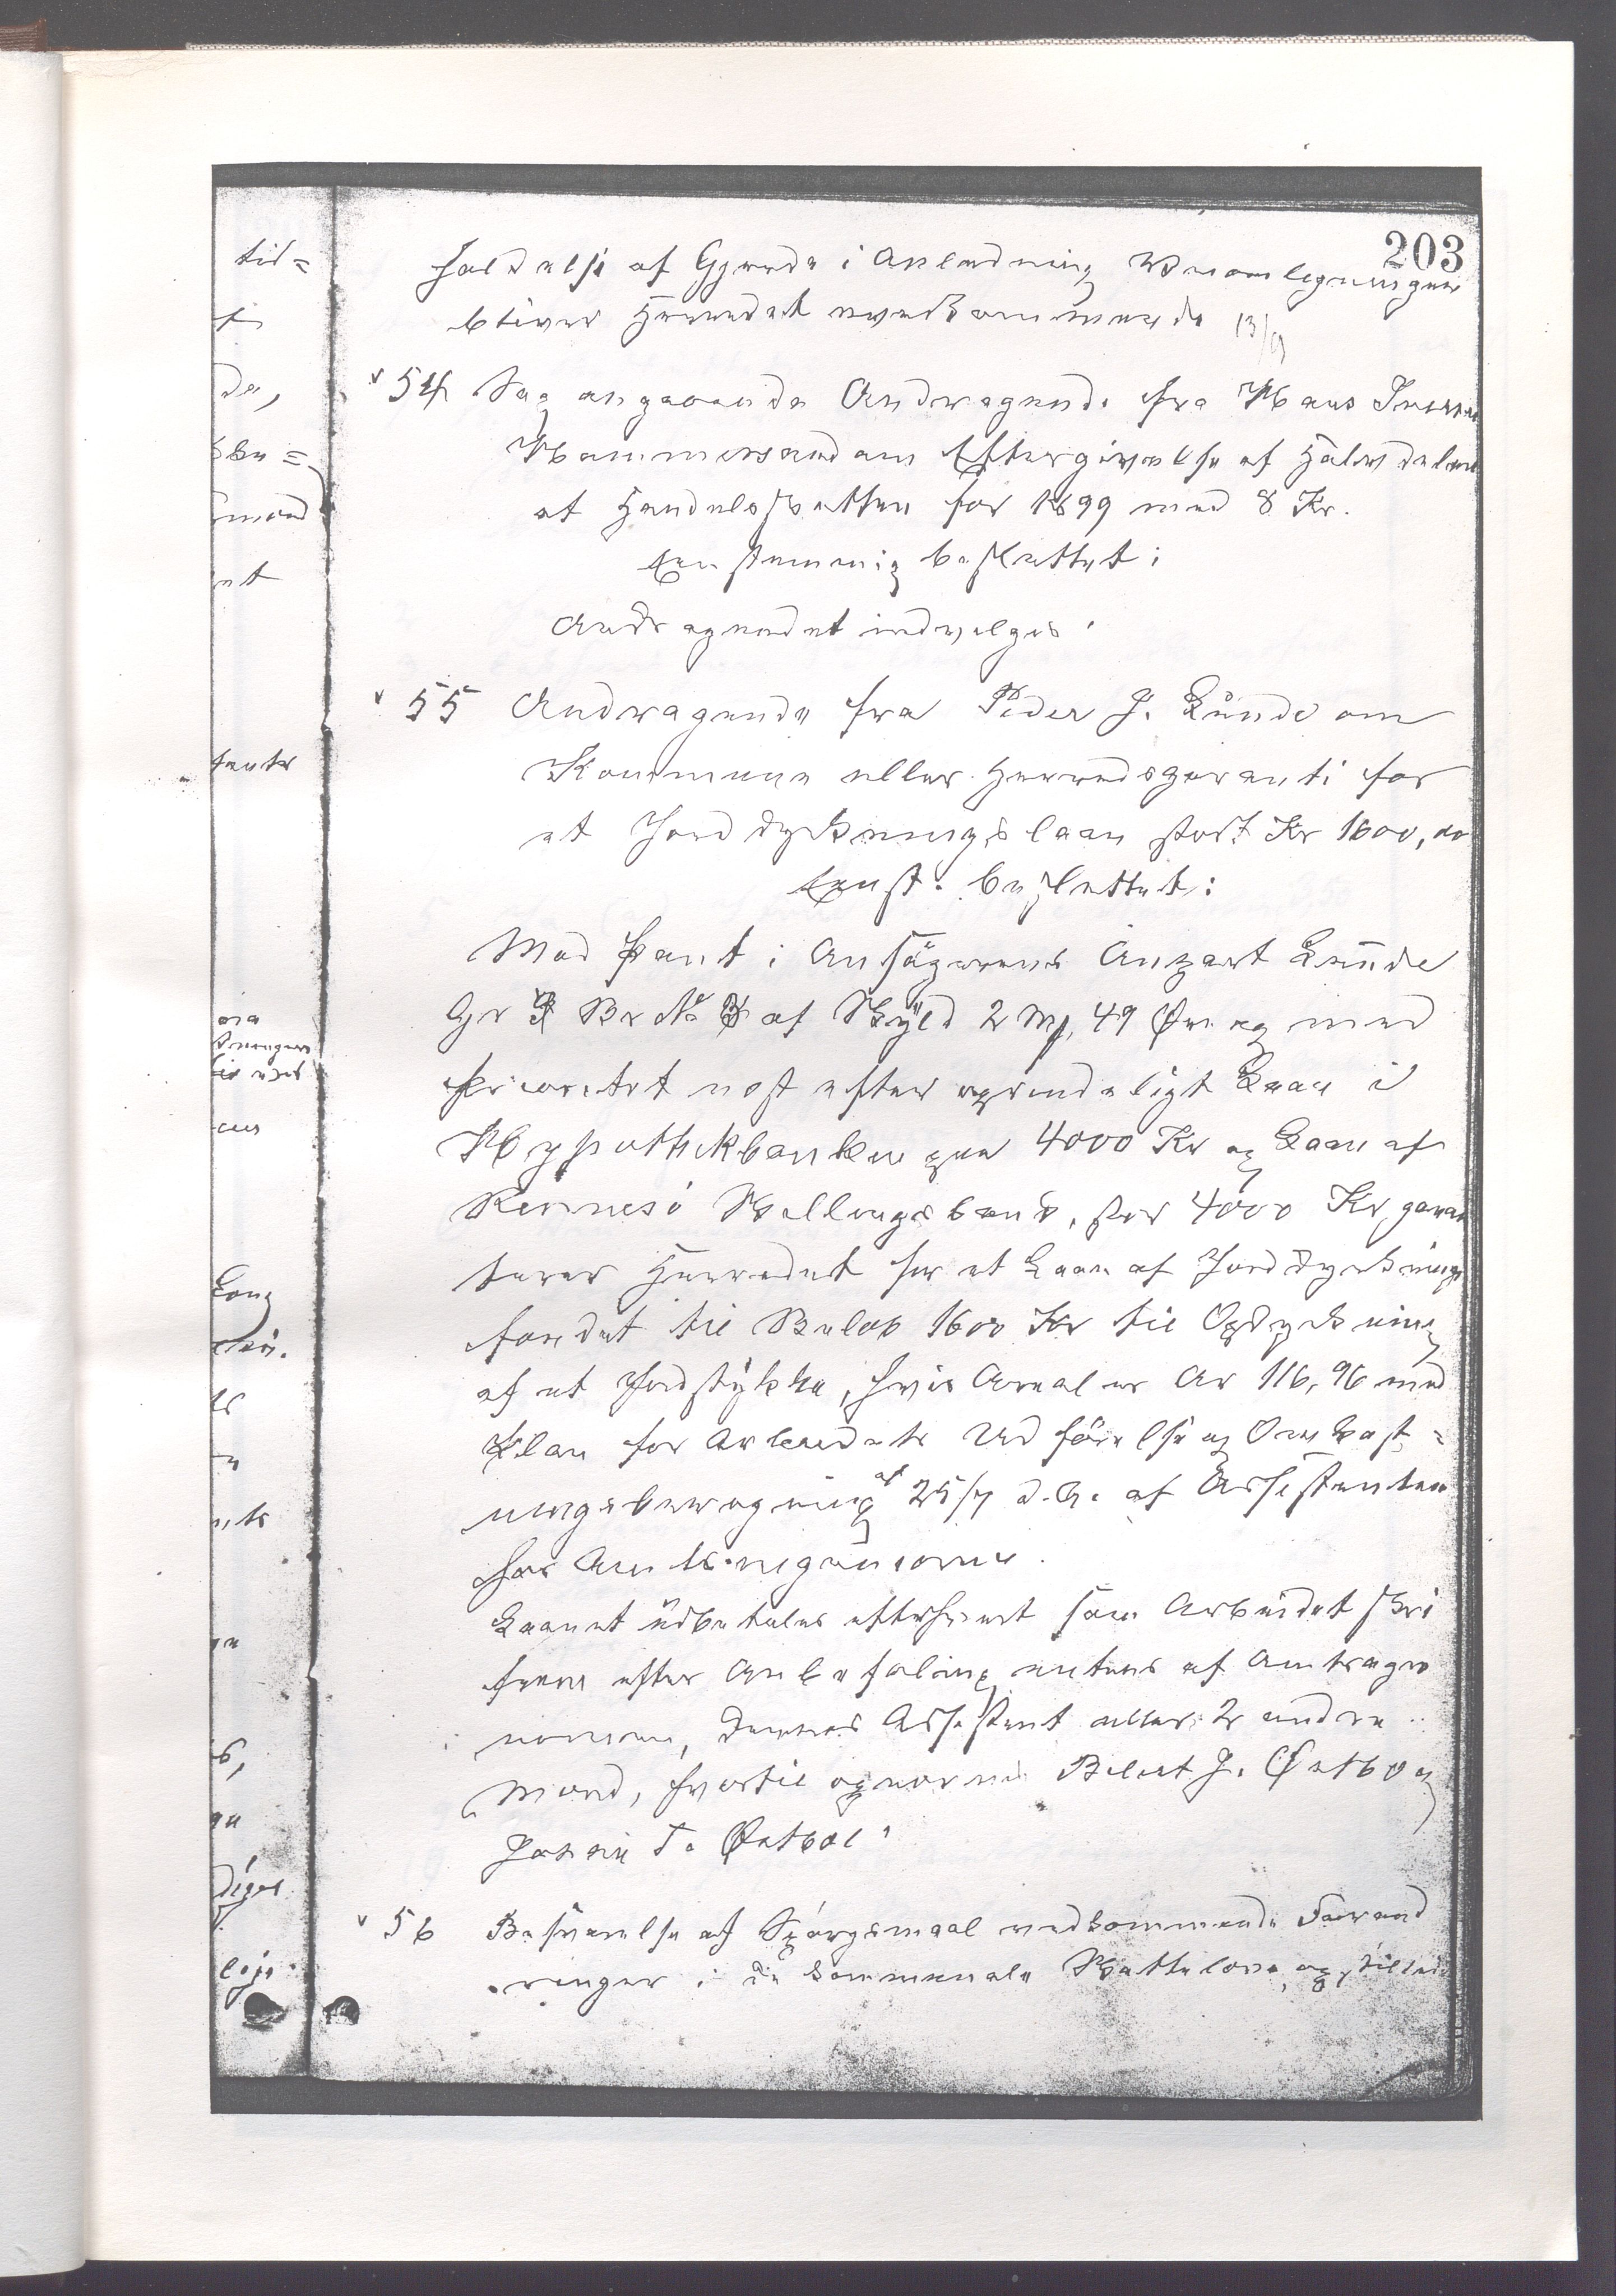 203
holdelse af Gjærde i Anledning Veiomlægningen
bliver Herredet uvedkommende 13/9
54 Sag angaaende Andragende fra Hans Iversen
Hammersand om Eftergivelse af Halvdelen
af Handelsskatten for 1899 med 8 Kr.
Enstemmig besluttet:
Andragendet indvilges.
55 Andragende fra Peder J. Lunde om
Kommune eller Herredsgaranti for
et Jorddyrkningslaan stort Kr 1600,00
Enst. besluttet:
Mod Pant i Ansøgerens Anpart Lunde
Gr Br No af Skyld 2 M, 49 Øre og med
Prioritet næst efter oprindeligt Laan i
Hypothekbanken paa 4000 Kr og Laan af
Rennesø Skillingsbank, stor 4000 Kr, garan
terer Herredet for et Laan af Jorddyrknings
fondet til Beløb 1600 Kr til Opdyrkning
af et Jordstykke, hvis Areal er Ar 116,96 med
Plan for Arbeidets Udførelse og Omkost=
ningsberegning af 25/7 d.A. af Assistenten
hos Amtsingeniøren.
Laanet udbetales efterhvert som Arbeidet skri
frem efter Anbefaling enten af Amtsagro
nomen, dennes Assistent eller 2 andre
Mænd, hvortil opnævnes Berent J. Østbø og
T. Østbø.
56 Besvarelse af Spørgsmaal vedkommende Forand
ringer i de kommunale Skattelove, og
tid=
de,
ske=
mænd
et
tents
Long